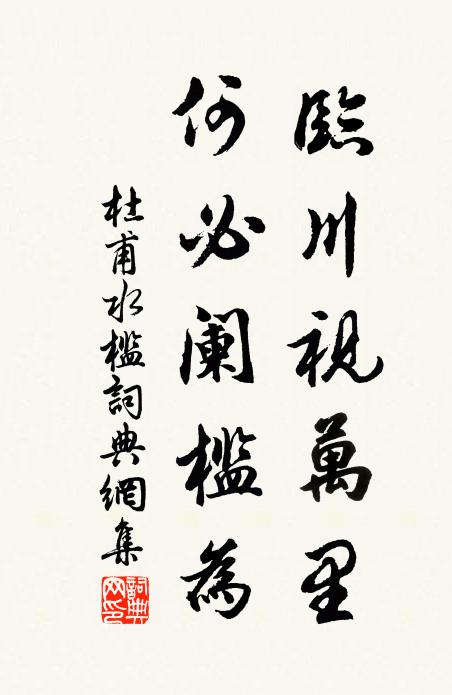 臨川視萬里
何必阑檻為
杜甫水檻詞典網集
詞典網印